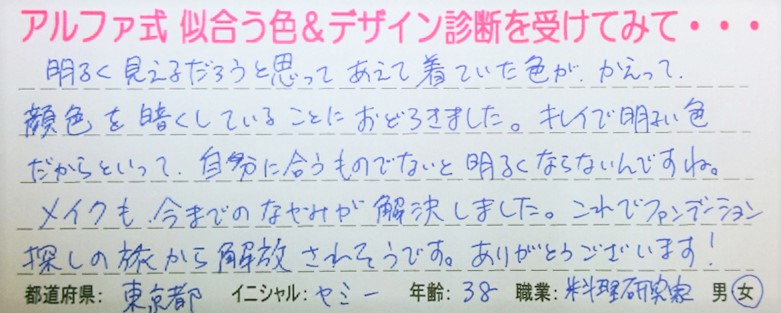 アルファ式 似合う色&デザイン診断を受けてみて・・・
明るく見えるだろうと思って あえて着ていた色が、かえって、
顔色を暗くしていることにおどろきました。キレイで明るい色
だからといって、自分に合うものでないと明るくならないんですね。
メイクも、今までのなやみが解決しました。これでファンデーション
探しの旅から解放されそうです。ありがとうございます!
都道府県: 東京都 イニシャル: セミー 年齢: 38 職業: 料理研究家 男 女